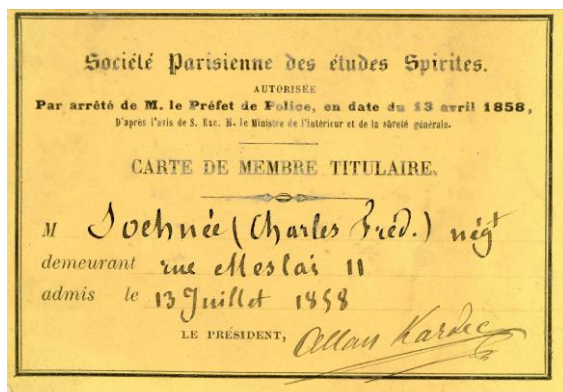 Société Parisienne des études Spirites.
AUTORISÉE
Par arrêté de M. le Préfet de Police, en date du 13 avril 1858,
D'après l'avis de S. Exc. M. le Ministre de l'intérieur et de la sûreté générale.
CARTE DE MEMBRE TITULAIRE.
M Soehnée (Charles Fréd.) négt
demeurant rue Meslai 11
admis le 13 Juillet 1858
LE PRÉSIDENT, Allan Kardec